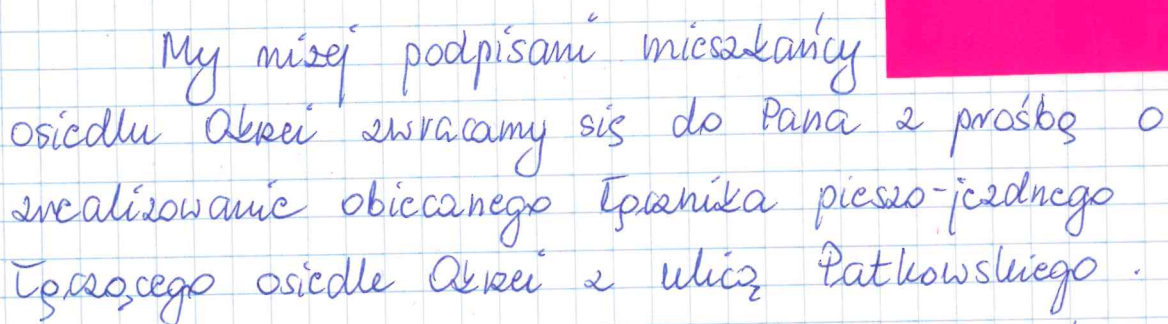 My niżej podpisani mieszkańcy
osiedlu Okrzei zwracamy się do Pana z prośbą o
zrealizowanie obiecanego łącznika pieszo-jezdnego
łączącego osiedle Okrzei z ulicą Patkowskiego.